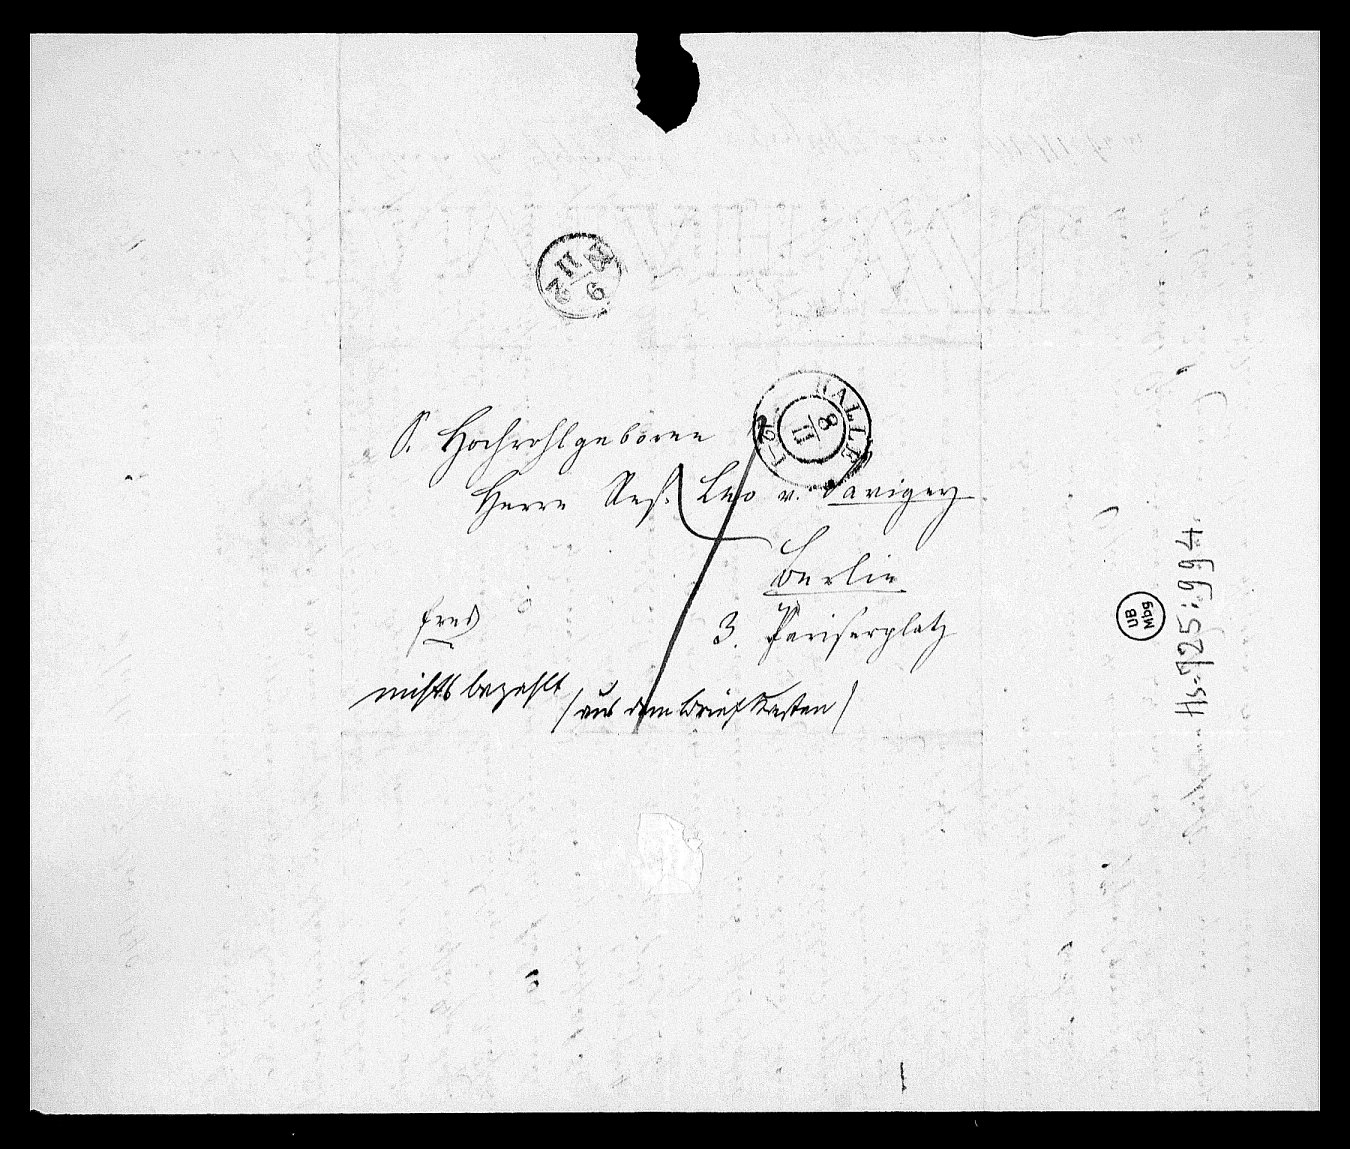 N 11/9 2
HALLE
8/11
S. Hochwohlgeboren
Herrn Leo v. Savigny
Berlin
3. Pariserplatz
frei
nichts bezahlt /aus dem Briefkasten/
UB Mbg
Hs. 725:994